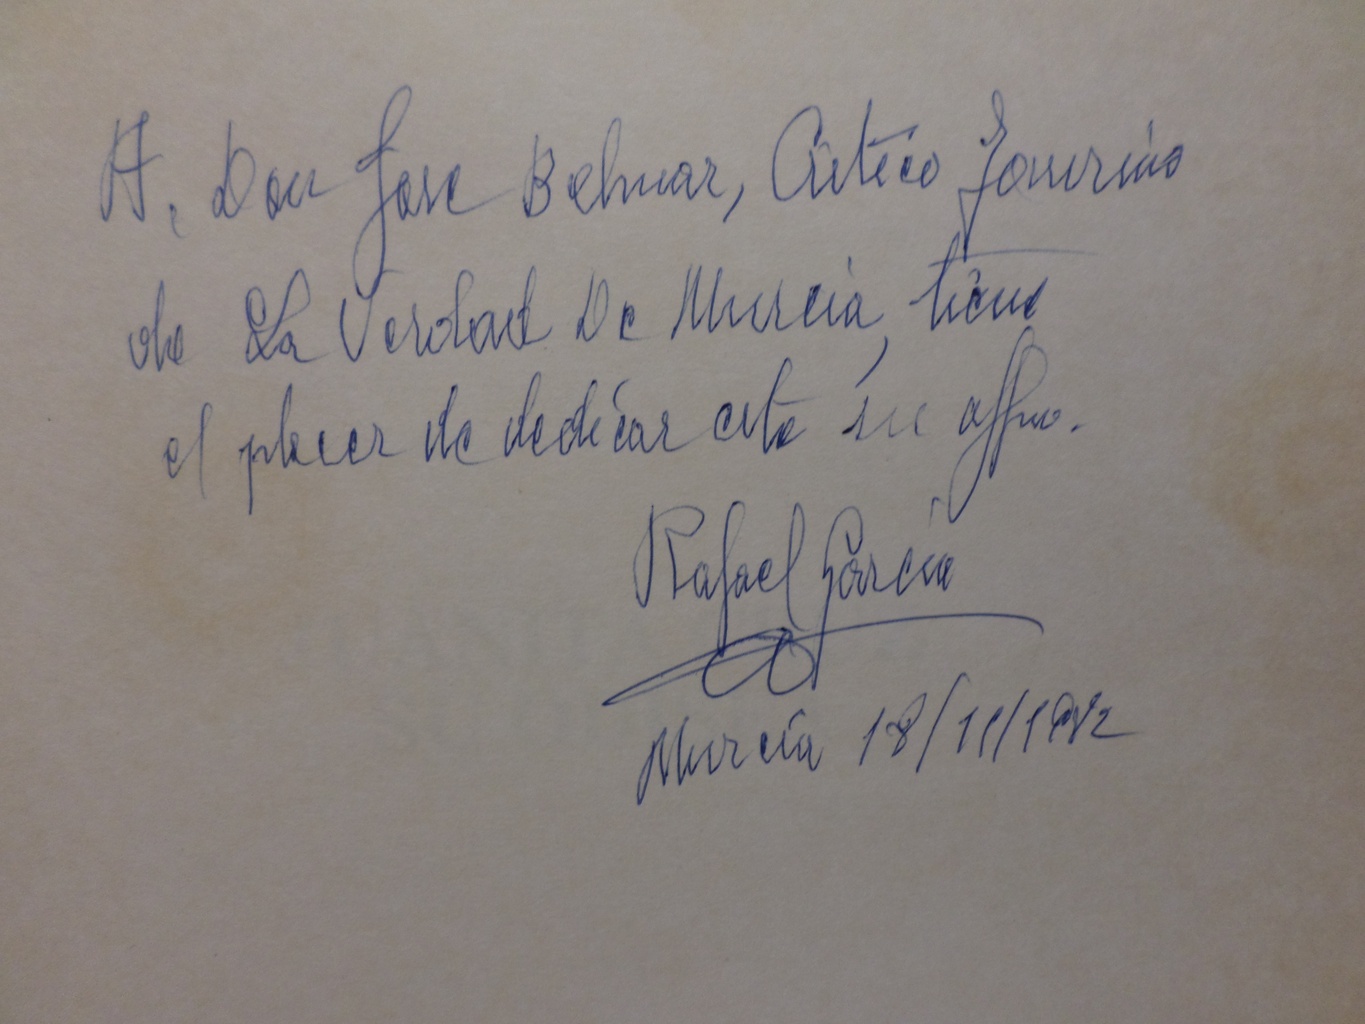 A. Don Jose Belmar, Critico Taurino
de La Verdad De Murcia, tiene
el placer de dedicar este su affmo.
Rafael García
Murcia 18/11/1982